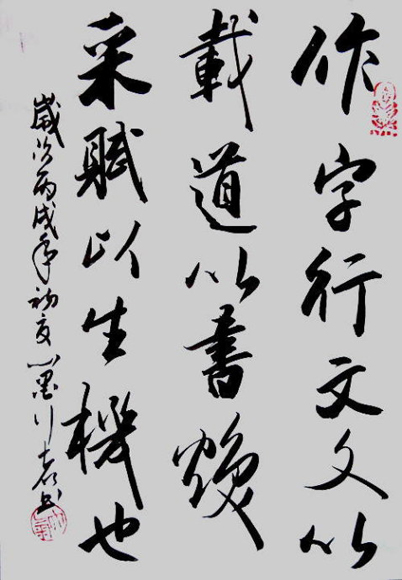 作字行文文以
載道以書煥
采賦以生機也
歲次丙戌年初夏